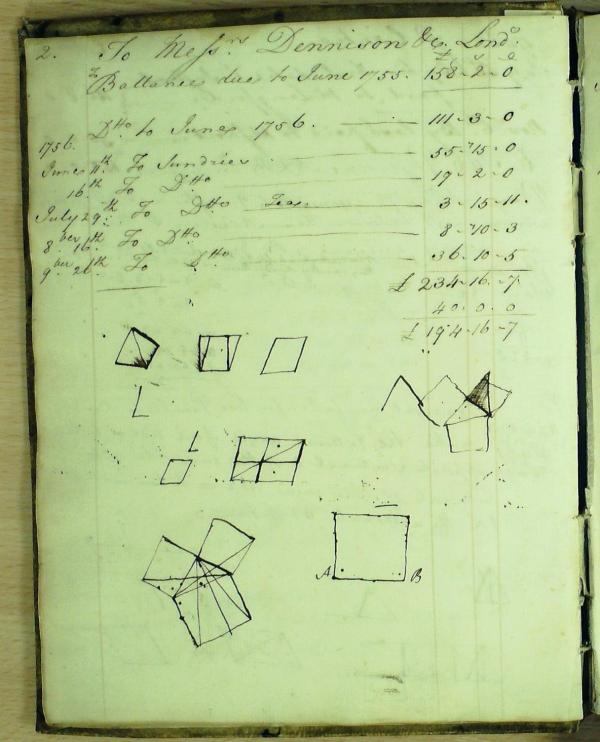 2. To Messrs Dennison &c. Londo.
£ s d
To Ballance due to June 1755. 158-2-0
Dtto to June 1756. 111-3-0
1756.
June 11th To Sundries 55-15-0
16th To Dtto 19-2-0
July 29th To Dtto Teas 3-15-11.
8ber 16th To Dtto 8-10-3
9ber 26th To Dtto 36-10-5
£ 234-16-7
40-0-0
£ 194-16-7
A B